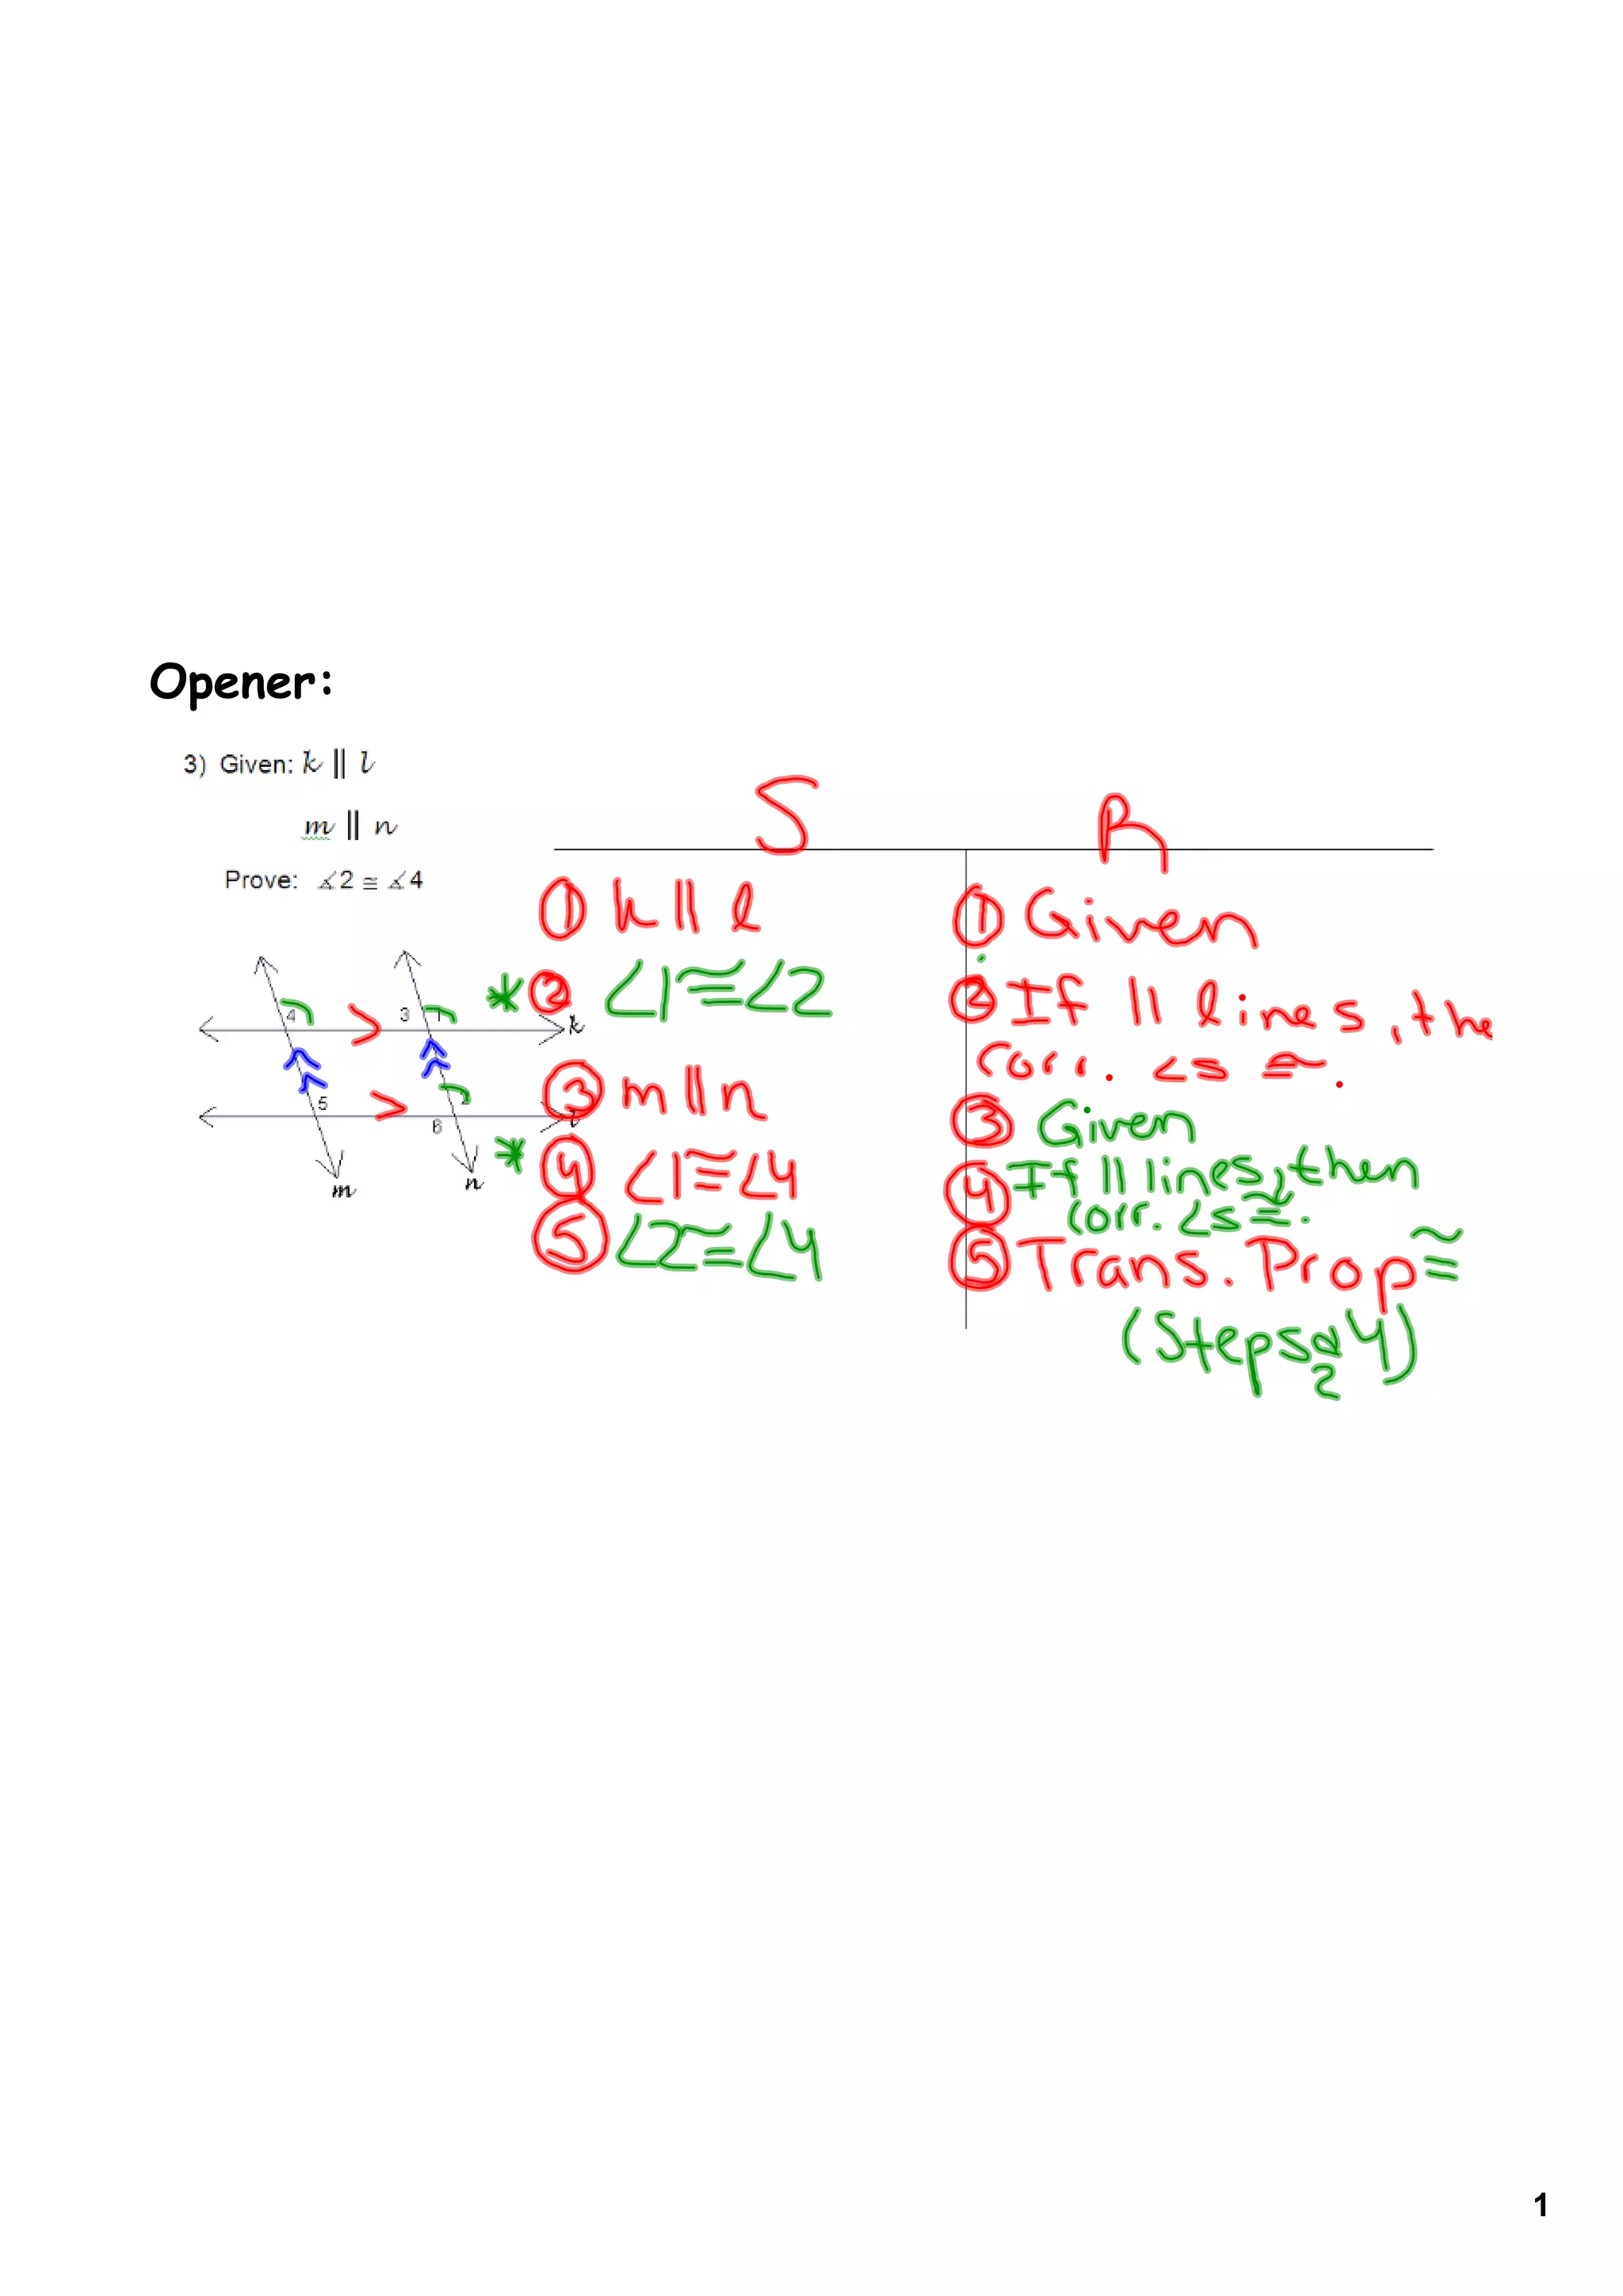 Opener:
3) Given: k || l
m || n
Prove: ∡2 ≅ ∡4
S R
① k || l ① Given
* ② ∠1 ≅ ∠2 ② If || lines, the
corr. ∠s ≅.
③ m || n ③ Given
* ④ ∠1 ≅ ∠4 ④ If || lines, then
corr. ∠s ≅.
⑤ ∠2 ≅ ∠4 ⑤ Trans. Prop ≅
(Steps 2 4)
4 3 1 k
5 2 l
6
m n
1